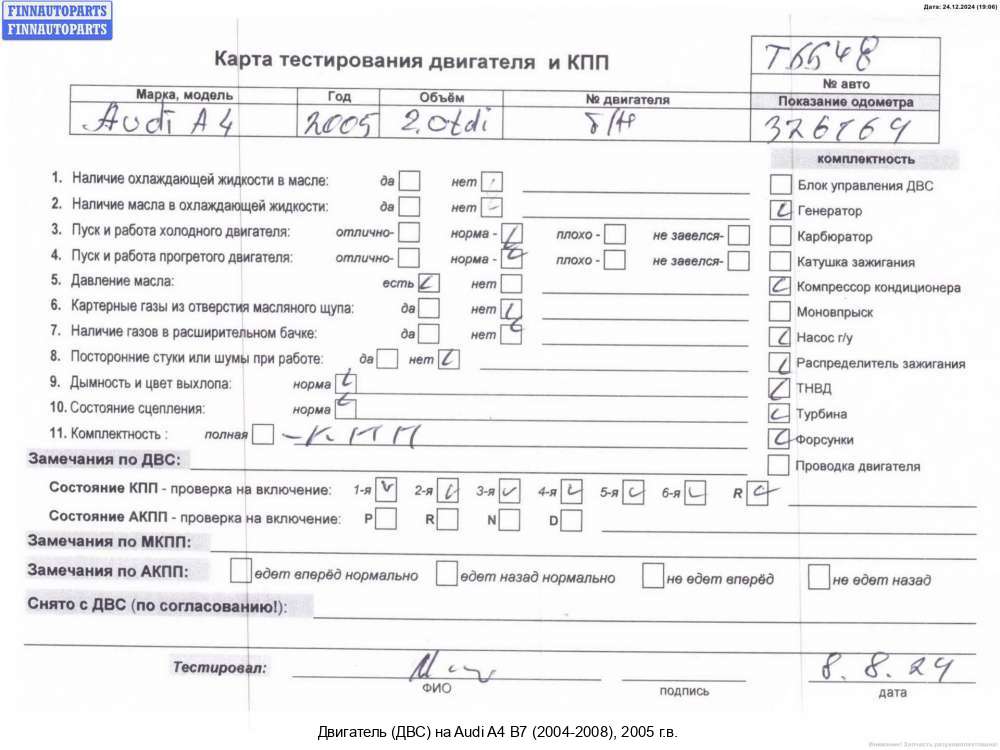 FINNAUTOPARTS
FINNAUTOPARTS
Дата: 24.12.2024 (19:06)
Карта тестирования двигателя и КПП
№ авто
Марка, модель Год Объём № двигателя Показание одометра
Audi A4 2005 2.0tdi б/н
комплектность
1. Наличие охлаждающей жидкости в масле: да нет
Блок управления ДВС
2. Наличие масла в охлаждающей жидкости: да нет
Генератор
3. Пуск и работа холодного двигателя: отлично- норма - плохо - не завелся-
Карбюратор
4. Пуск и работа прогретого двигателя: отлично- норма - плохо - не завелся-
Катушка зажигания
5. Давление масла: есть нет
Компрессор кондиционера
6. Картерные газы из отверстия масляного щупа: да нет
Моновпрыск
7. Наличие газов в расширительном бачке: да нет
Насос г/у
8. Посторонние стуки или шумы при работе: да нет
Распределитель зажигания
9. Дымность и цвет выхлопа: норма
ТНВД
10. Состояние сцепления: норма
Турбина
11. Комплектность : полная - КПП
Форсунки
Замечания по ДВС:
Проводка двигателя
Состояние КПП - проверка на включение: 1-я 2-я 3-я 4-я 5-я 6-я R
Состояние АКПП - проверка на включение: P R N D
Замечания по МКПП:
Замечания по АКПП: едет вперёд нормально едет назад нормально не едет вперёд не едет назад
Снято с ДВС (по согласованию!):
Тестировал: 8.8.24
ФИО подпись дата
Двигатель (ДВС) на Audi A4 B7 (2004-2008), 2005 г.в.
Внимание! Запчасть разукомплектована!